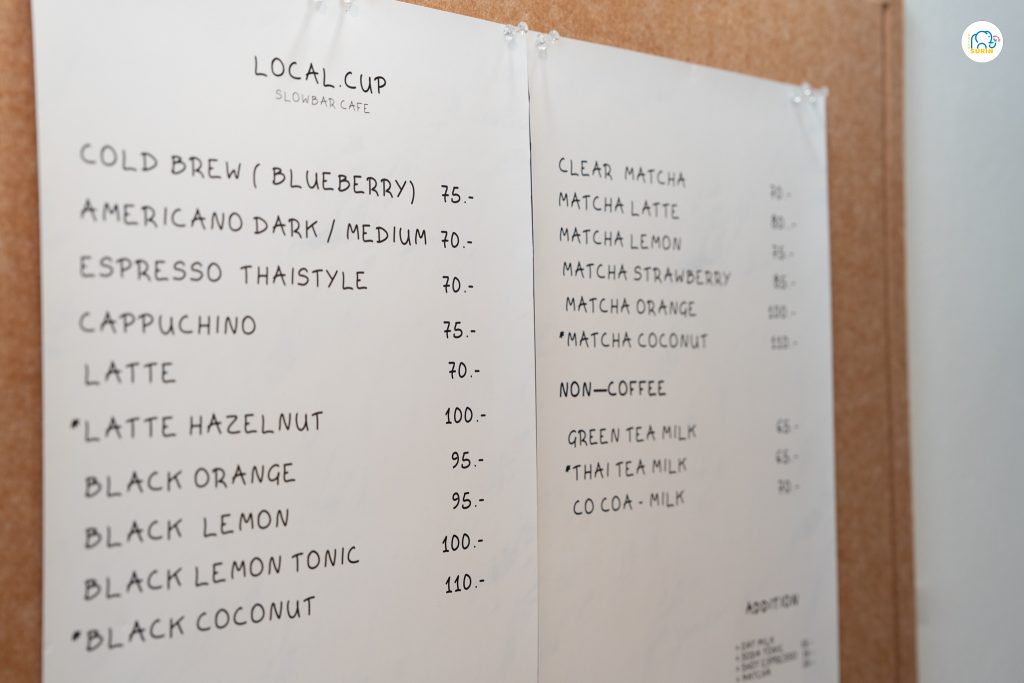 LOCAL.CUP
SLOWBAR CAFE
COLD BREW ( BLUEBERRY) 75.-
AMERICANO DARK / MEDIUM 70.-
ESPRESSO THAISTYLE 70.-
CAPPUCHINO 75.-
LATTE 70.-
*LATTE HAZELNUT 100.-
BLACK ORANGE 95.-
BLACK LEMON 95.-
BLACK LEMON TONIC 100.-
*BLACK COCONUT 110.-
CLEAR MATCHA 70.-
MATCHA LATTE 80.-
MATCHA LEMON 75.-
MATCHA STRAWBERRY 85.-
MATCHA ORANGE 100.-
*MATCHA COCONUT 110.-
NON-COFFEE
GREEN TEA MILK 65.-
*THAI TEA MILK 65.-
CO COA - MILK 70.-
ADDITION
+ OAT MILK
+ MATCHA
SURIN